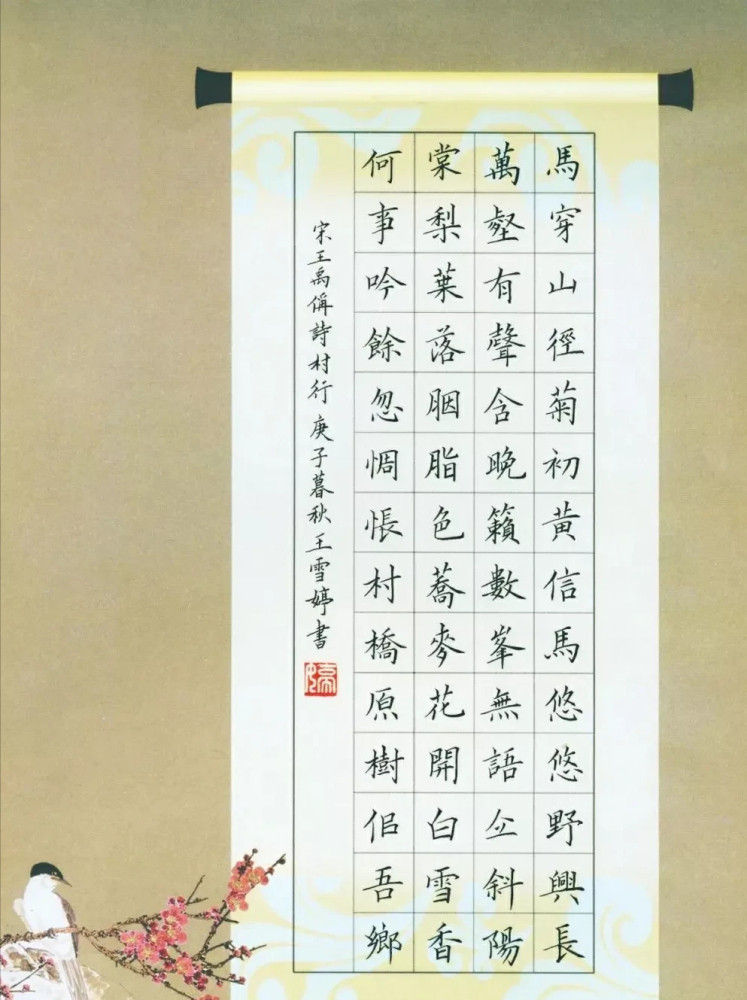 馬穿山徑菊初黄信馬悠悠野興長
萬壑有聲含晚籟數峯無語立斜陽
棠梨葉落胭脂色蕎麥花開白雪香
何事吟餘忽惆悵村橋原樹佀吾鄉
宋王禹偁詩村行 庚子暮秋王雪婷書
婷